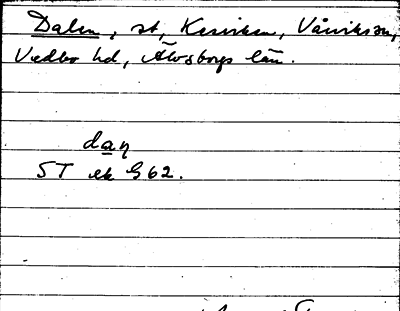 Dalen, st, Kesviken, Vårviks sn,
Vedbo hd, Älvsborgs län.
daŋ
ST ek G62.